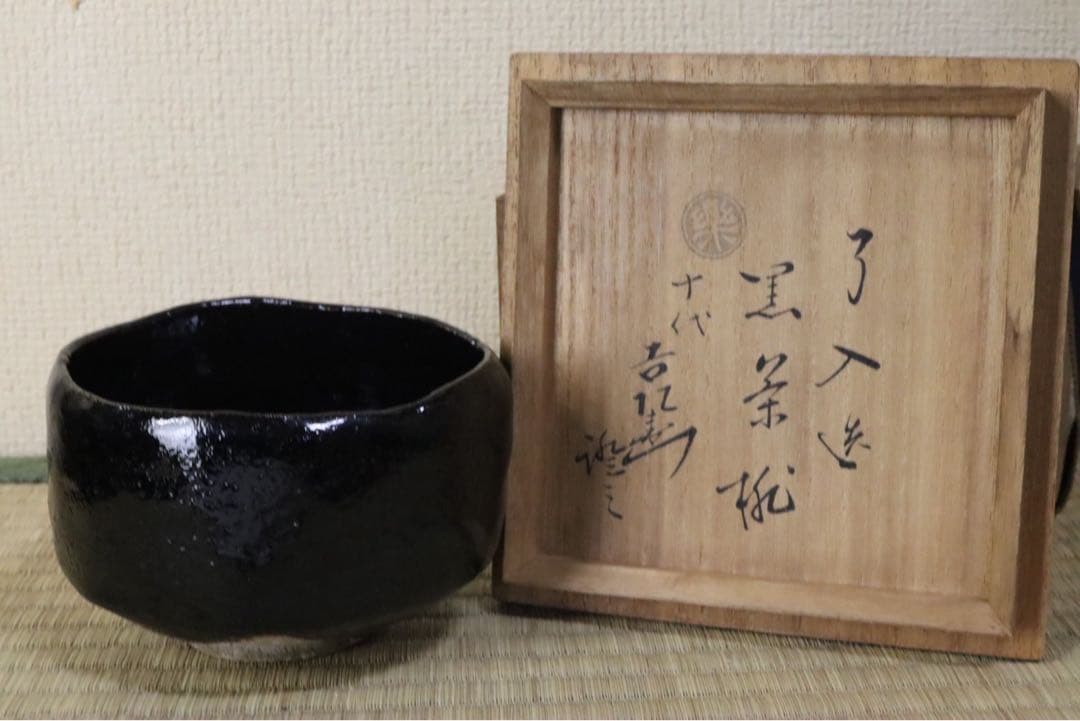 了入造
黒茶椀
樂
十代
吉左衛門
證之